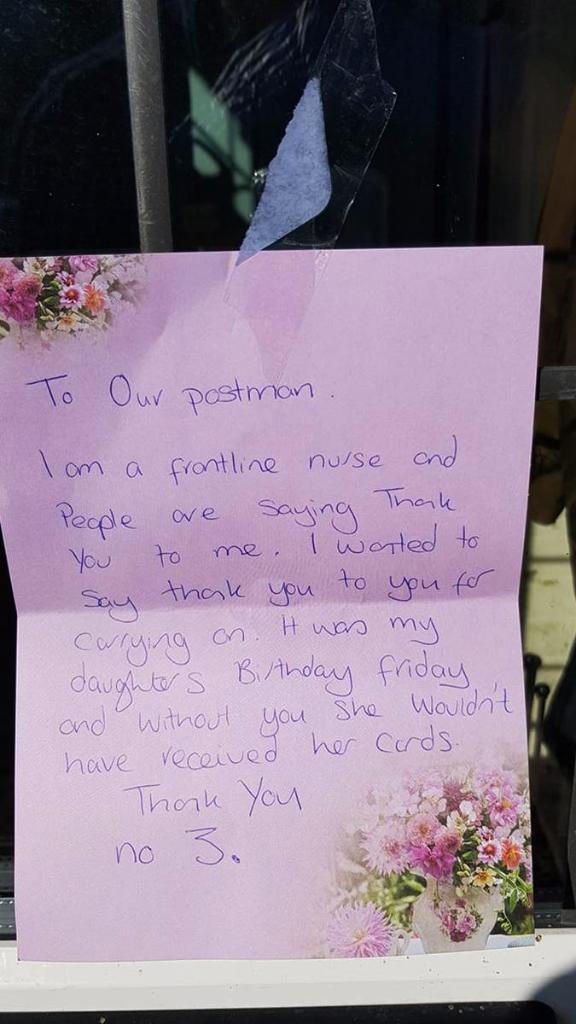 To Our postman.
I am a frontline nurse and
People are saying Thank
You to me. I wanted to
say thank you to you for
carrying on. It was my
daughters Birthday friday,
and without you she wouldn't
have received her cards.
Thank You
no 3.